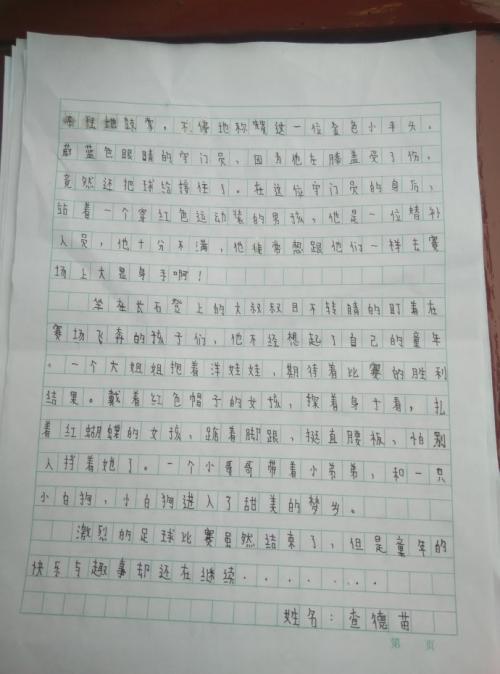 疯狂地鼓掌，不停地称赞这一位金色小平头，
蔚蓝色眼睛的守门员，因为他左膝盖受了伤，
竟然还把球给接住了。在这位守门员的身后，
站着一个穿红色运动装的男孩，他是一位替补
人员，他十分不满，他非常想跟他们一样去赛
场上大显身手啊！
坐在长石登上的大叔叔目不转睛的盯着在
赛场飞奔的孩子们，他不经想起了自己的童年
。一个大姐姐抱着洋娃娃，期待着比赛的胜利
结果。戴着红色帽子的女孩，探着身子看，扎
着红蝴蝶的女孩，踮着脚跟，挺直腰板，怕别
人挡着她了。一个小哥哥带着小弟弟，和一只
小白狗，小白狗进入了甜美的梦乡。
激烈的足球比赛虽然结束了，但是童年的
快乐与趣事却还在继续．．．．．．．
姓名：查德苗
第 页